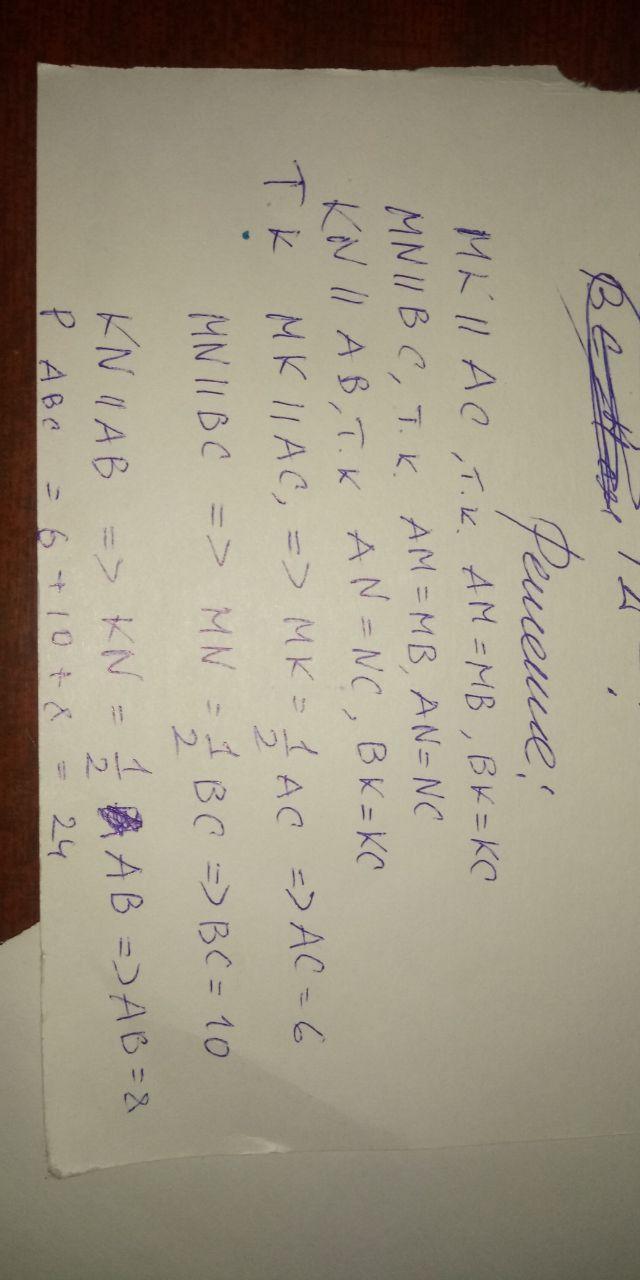 Решение:
MK || AC, т.к. AM = MB, BK = KC
MN || BC, т.к. AM = MB, AN = NC
KN || AB, т.к AN = NC, BK = KC
Т к MK || AC, => MK = 1/2 AC => AC = 6
MN || BC => MN = 1/2 BC => BC = 10
KN || AB => KN = 1/2 AB => AB = 8
P ABC = 6 + 10 + 8 = 24